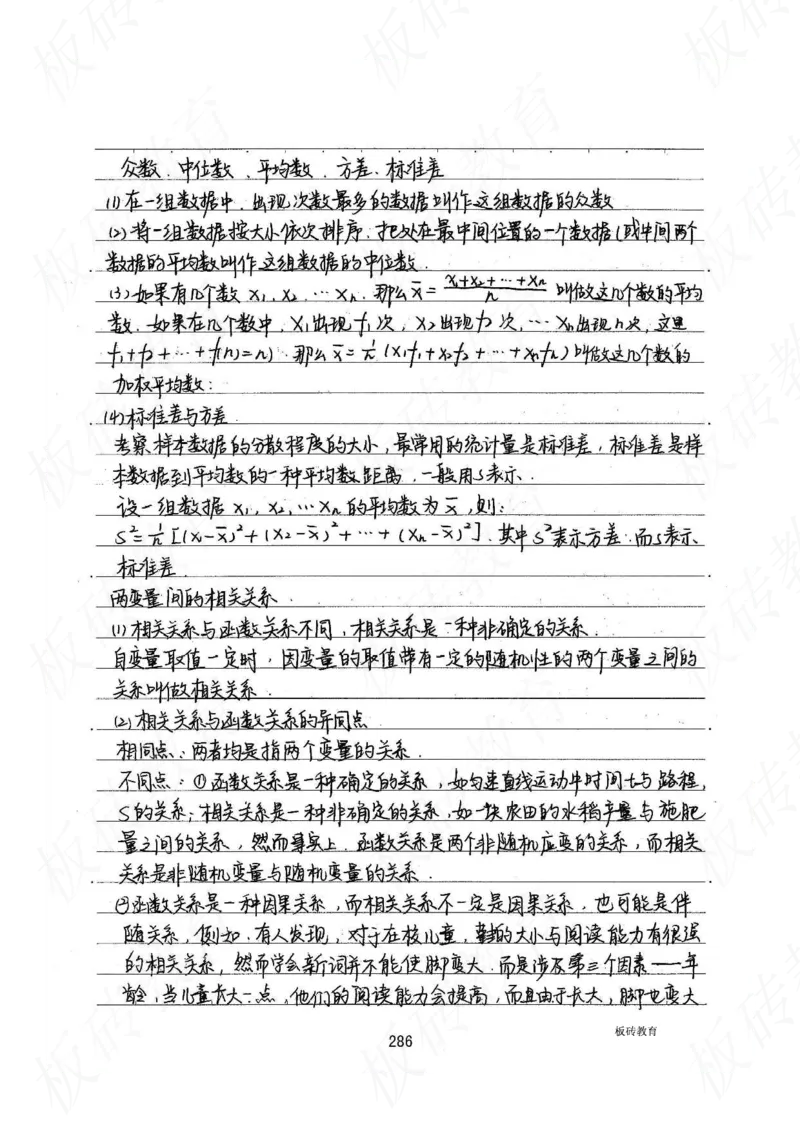 众数、中位数、平均数、方差、标准差
(1)在一组数据中,出现次数最多的数据叫作这组数据的众数
(2)将一组数据按大小依次排序,把处在最中间位置的一个数据(或中间两个
数据的平均数叫作这组数据的中位数.
(3)如果有几个数 x₁, x₂, … xₙ. 那么 x̄ = (x₁+x₂+…+xₙ)/n 叫做这几个数的平均
数. 如果在几个数中, x₁出现f₁次, x₂出现f₂次, … xₙ出现n次, 这里
f₁+f₂+…+f(n)=n). 那么 x̄ = 1/n (x₁f₁+x₂f₂+…+xₙfₙ)叫做这几个数的
加权平均数:
(4)标准差与方差
考察样本数据的分散程度的大小,最常用的统计量是标准差,标准差是样
本数据到平均数的一种平均数距离,一般用s表示.
设一组数据 x₁, x₂, … xₙ 的平均数为 x̄, 则:
S²=1/n[(x₁-x̄)²+(x₂-x̄)²+…+(xₙ-x̄)²]. 其中S²表示方差.而s表示
标准差.
两变量间的相关关系.
(1)相关关系与函数关系不同,相关关系是一种非确定的关系.
自变量取值一定时,因变量的取值带有一定的随机性的两个变量之间的
关系叫做相关关系.
(2)相关关系与函数关系的异同点
相同点:两者均是指两个变量的关系.
不同点:①函数关系是一种确定的关系,如匀速直线运动中时间t与路程,
S的关系;相关关系是一种非确定的关系,如一块农田的水稻产量与施肥
量之间的关系,然而事实上.函数关系是两个非随机应变的关系,而相关
关系是非随机变量与随机变量的关系.
②函数关系是一种因果关系,而相关关系不一定是因果关系,也可能是伴
随关系,例如.有人发现,对于在校儿童,鞋的大小与阅读能力有很强
的相关关系,然而学会新词并不能使脚变大.而是涉及第三个因素——年
龄,当儿童长大一点,他们的阅读能力会提高,而且由于长大,脚也变大
板砖教育
286